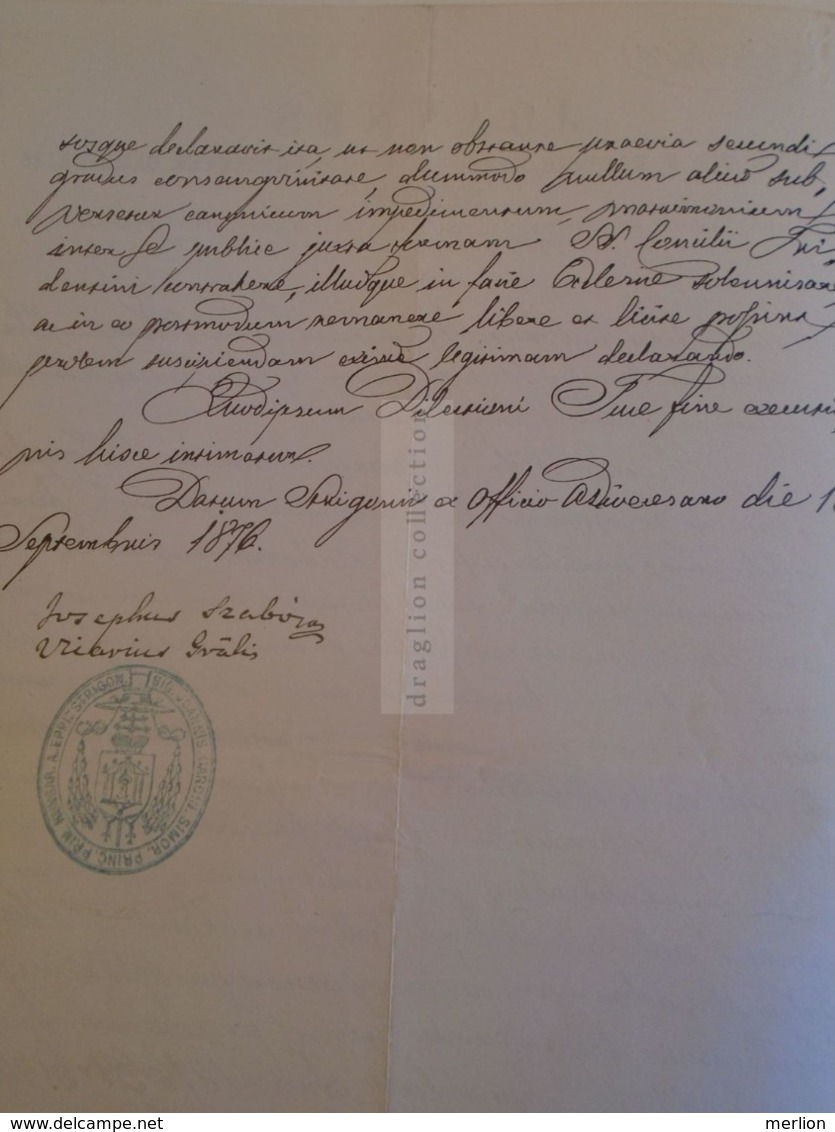 tosque declaravit ita, ut non obstante praevia secundi
gradus consanguinitate, dummodo nullum aliud sub,
versetur canonicum impedimentum, matrimonium
inter se publice juxta formam S. Concilii Tri
dentini contrahere, illudque in facie Ecclesiae solemnisare
ac in eo postmodum remanere libere et licite possint,
prolem suscipiendam exinde legitimam declarando.
Quodipsum Dilectioni Tuae fine
hisce intimatur.
Datum Strigonii e Officio Adiocesano die 1
Septembris 1876.
Josephus Szabó
Vicarius Grālis
SIMOR. PRINC. PRIM. HUNGAR. A. EPPI. STRIGON
draglion collection
http://www.delcampe.net
merlion